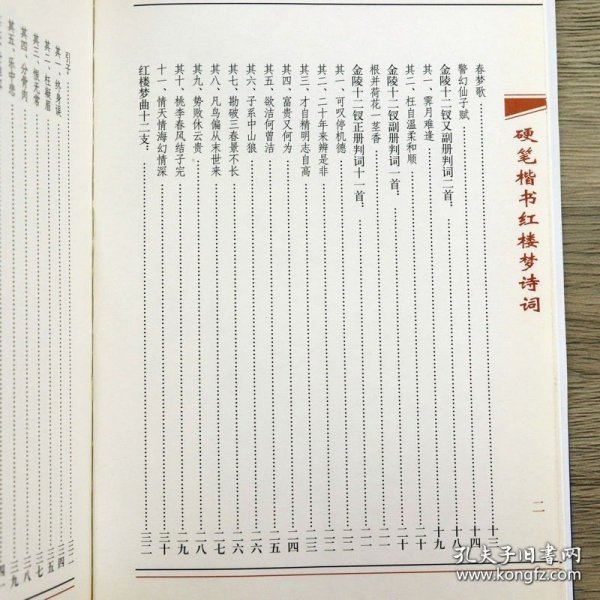 硬笔楷书红楼梦诗词
二
春梦歌 十三
警幻仙子赋 十四
金陵十二钗又副册判词二首: 十八
其一、霁月难逢 十八
其二、枉自温柔和顺 十九
金陵十二钗副册判词一首: 二十
根并荷花一茎香 二十
金陵十二钗正册判词十一首: 二一
其一、可叹停机德 二一
其二、二十年来辨是非 二二
其三、才自精明志自高 二三
其四、富贵又何为 二四
其五、欲洁何曾洁 二五
其六、子系中山狼 二六
其七、勘破三春景不长 二六
其八、凡鸟偏从末世来 二七
其九、势败休云贵 二八
其十、桃李春风结子完 二九
十一、情天情海幻情深 三十
红楼梦曲十二支: 三二
引子
其一、终身误
其二、枉凝眉
其三、恨无常
其四、分骨肉
其五、乐中悲
孔夫子旧书网
www.kongfz.com